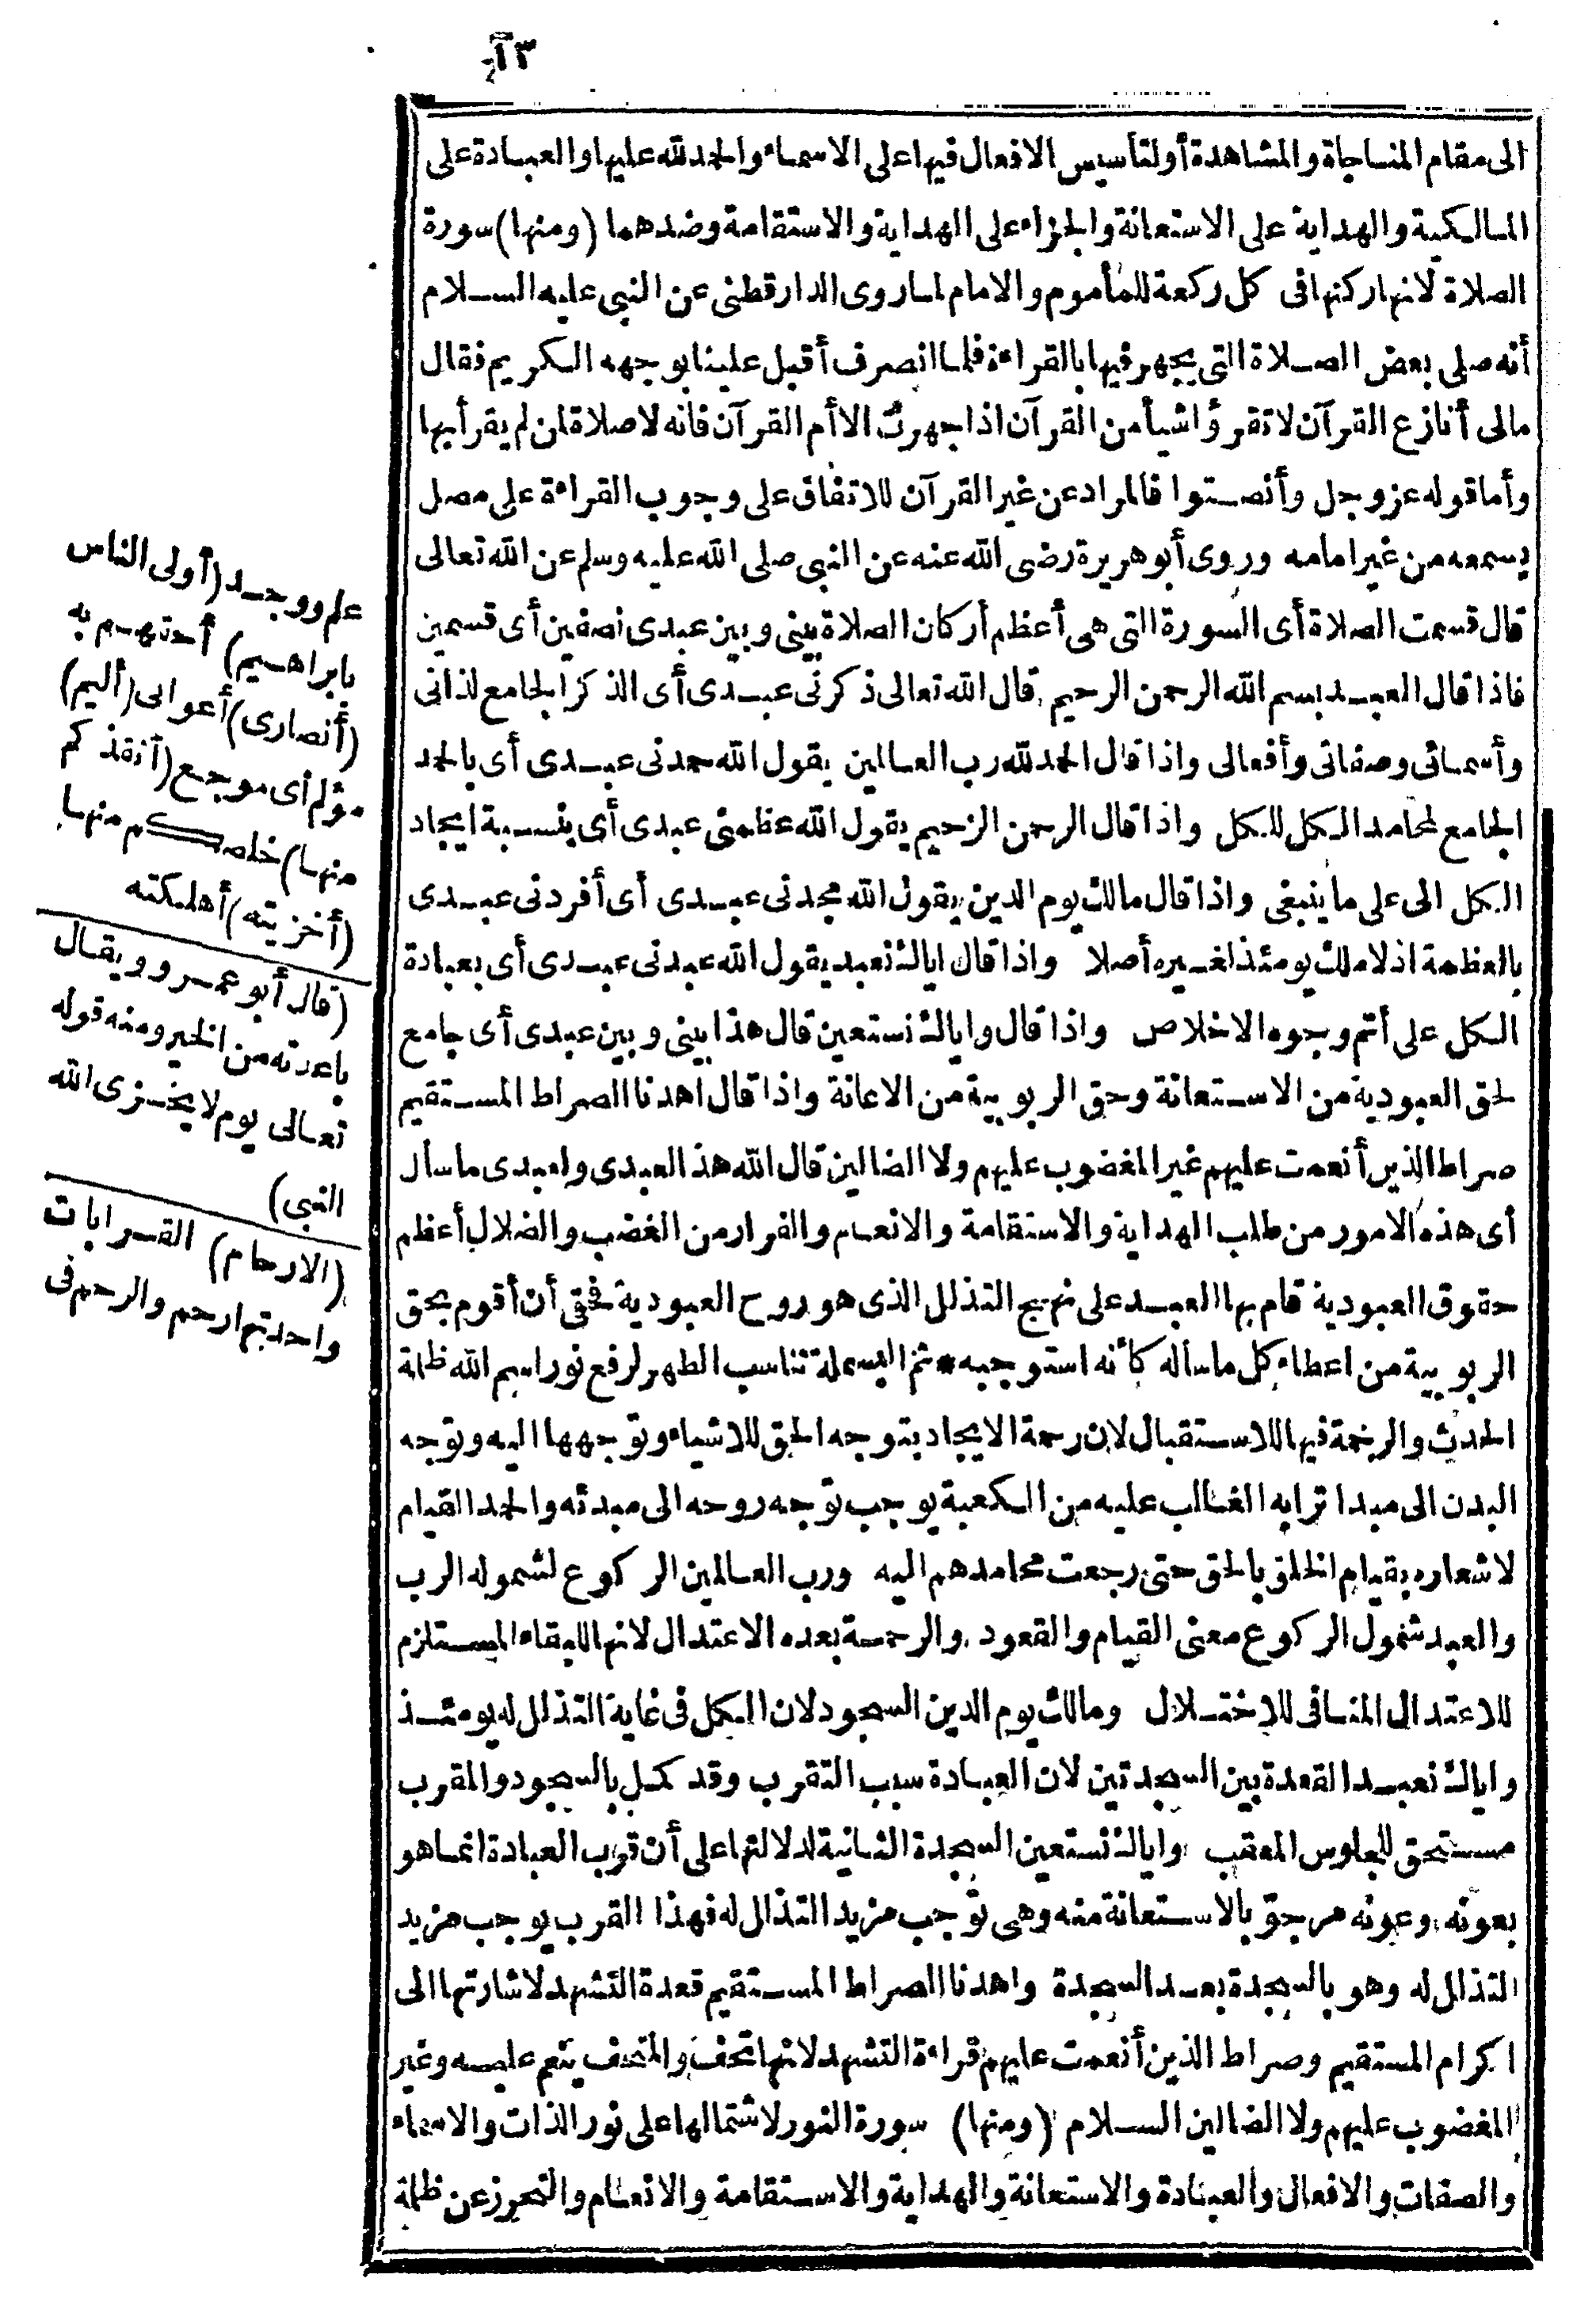 ١٣
الى مقام المناجاة والمشاهدة أولتأسيس الافعال فيها على الاسماء والحمد لله عليها والعبادة على
المالكية والهداية على الاستعانة والجزاء على الهداية والاستقامة وضدهما (ومنها) سورة
الصلاة لانها ركنها فى كل ركعة للمأموم والامام لما روى الدارقطنى عن النبى عليه السلام
أنه صلى بعض الصلاة التى يجهر فيها بالقراءة فلما انصرف أقبل علينا بوجهه الكريم فقال
مالى أنازع القرآن لا تقرؤا شيأ من القرآن اذا جهرت الا أم القرآن فانه لا صلاة لمن لم يقرأ بها
وأما قوله عز وجل وأنصتوا فالمراد عن غير القرآن للاتفاق على وجوب القراءة على مصل
يسمعه من غير امامه وروى أبو هريرة رضى الله عنه عن النبى صلى الله عليه وسلم عن الله تعالى
قال قسمت الصلاة أى السورة التى هى أعظم أركان الصلاة بينى وبين عبدى نصفين أى قسمين
فاذا قال العبد بسم الله الرحمن الرحيم قال الله تعالى ذكرنى عبدى أى الذكر الجامع لذاتى
وأسمائى وصفاتى وأفعالى واذا قال الحمد لله رب العالمين يقول الله حمدنى عبدى أى بالحمد
الجامع لمحامد الكل للكل واذا قال الرحمن الرحيم يقول الله عظمنى عبدى أى بنسبة ايجاد
الكل الى على ما ينبغى واذا قال مالك يوم الدين يقول الله مجدنى عبدى أى أفردنى عبدى
بالعظمة اذ لا ملك يومئذ لغيره أصلا واذا قال اياك نعبد يقول الله عبدنى عبدى أى بعبادة
الكل على أتم وجوه الاخلاص واذا قال واياك نستعين قال هذا بينى وبين عبدى أى جامع
لحق العبودية من الاستعانة وحق الربوبية من الاعانة واذا قال اهدنا الصراط المستقيم
صراط الذين أنعمت عليهم غير المغضوب عليهم ولا الضالين قال الله هذا لعبدى ولعبدى ما سأل
أى هذه الامور من طلب الهداية والاستقامة والانعام والفرار من الغضب والضلال أعظم
حقوق العبودية قام بها العبد على نهج التذلل الذى هو روح العبودية فحق أن أقوم بحق
الربوبية من اعطاء كل ما سأله كأنه استوجبه * ثم البسملة تناسب الطهر لرفع نور اسم الله ظلمة
الحدث والرحمة فيها للاستقبال لان رحمة الايجاد بتوجه الحق للاشياء وتوجهها اليه وتوجه
البدن الى مبدا ترابه الغالب عليه من الكعبة يوجب توجه روحه الى مبدئه والحمد القيام
لاشعاره بقيام الخلق بالحق حتى رجعت محامدهم اليه ورب العالمين الركوع لشموله الرب
والعبد شمول الركوع معنى القيام والقعود والرحمة بعده الاعتدال لانها للبقاء المستلزم
للاعتدال المنافى للاختلال ومالك يوم الدين السجود لان الكل فى غاية التذلل له يومئذ
واياك نعبد القعدة بين السجدتين لان العبادة سبب التقرب وقد كمل بالسجود والمقرب
مستحق للجلوس المعقب واياك نستعين السجدة الثانية لدلالتها على أن قرب العبادة انما هو
بعونه وعونه مرجو بالاستعانة منه وهى توجب مزيد التذلل له فهذا القرب يوجب مزيد
التذلل له وهو بالسجدة بعد السجدة واهدنا الصراط المستقيم قعدة التشهد لاشارتها الى
اكرام المستقيم وصراط الذين أنعمت عليهم قراءة التشهد لانها تحف والمتحف ينعم عليه وغير
المغضوب عليهم ولا الضالين السلام (ومنها) سورة النور لاشتمالها على نور الذات والاسماء
والصفات والافعال والعبادة والاستعانة والهداية والاستقامة والانعام والتحرز عن ظلمة
علم ووجد (أولى الناس
بابراهيم) أحقهم به
(أنصارى) أعوانى (أليم)
مؤلم أى موجع (أنقذكم
منها) خلصكم منها
(أخزيته) أهلكته
(قال أبو عمرو ويقال
باعدته من الخير ومنه قوله
تعالى يوم لا يخزى الله
النبى)
(الارحام) القرابات
واحدتها رحم والرحم فى